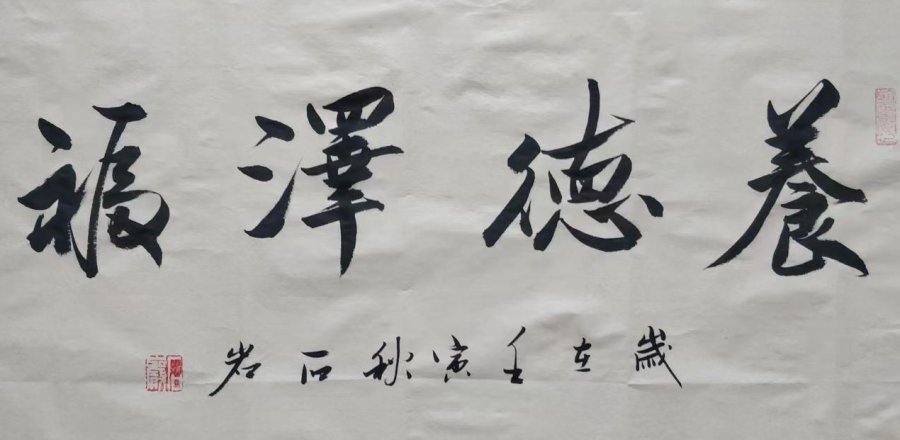 養德澤福
歲在壬寅秋石岩